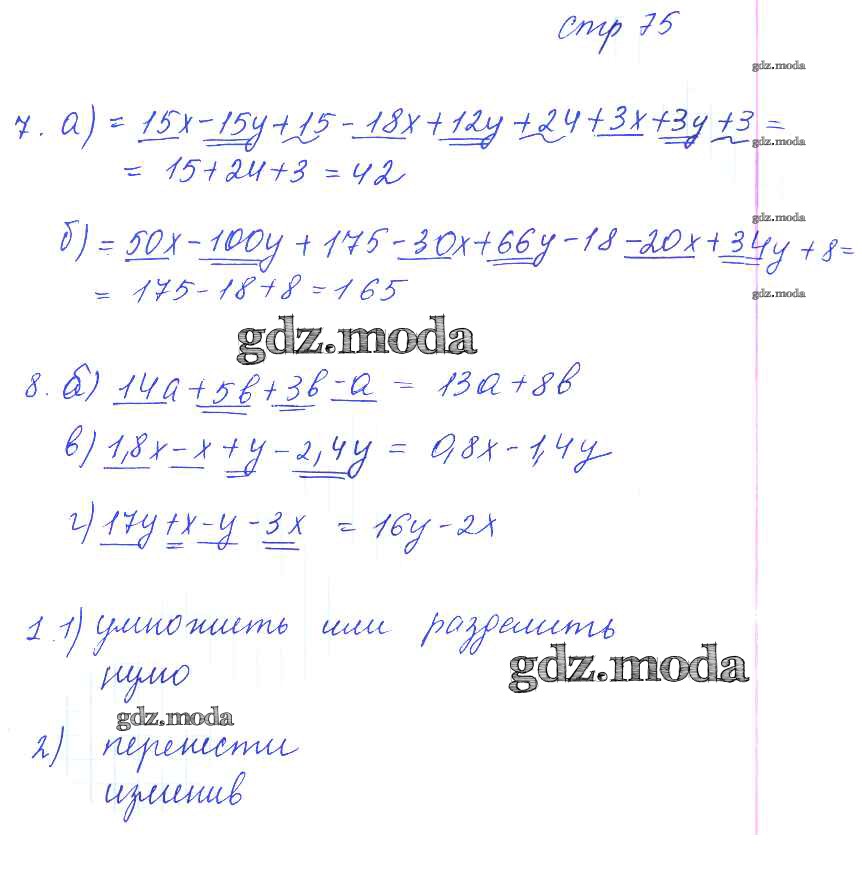 стр 75
gdz.moda
7. а) = 15x-15y+15-18x+12y+24+3x+3y+3=
gdz.moda
= 15+24+3 = 42
gdz.moda
б) = 50x-100y+175-30x+66y-18-20x+34y+8=
= 175-18+8=165
gdz.moda
gdz.moda
8. б) 14a+5b+3b-a = 13a+8b
в) 1,8x-x+y-2,4y = 0,8x-1,4y
г) 17y+x-y-3x = 16y-2x
1. 1) умножить или разделить
gdz.moda
нулю
gdz.moda
2) перенести
изменив